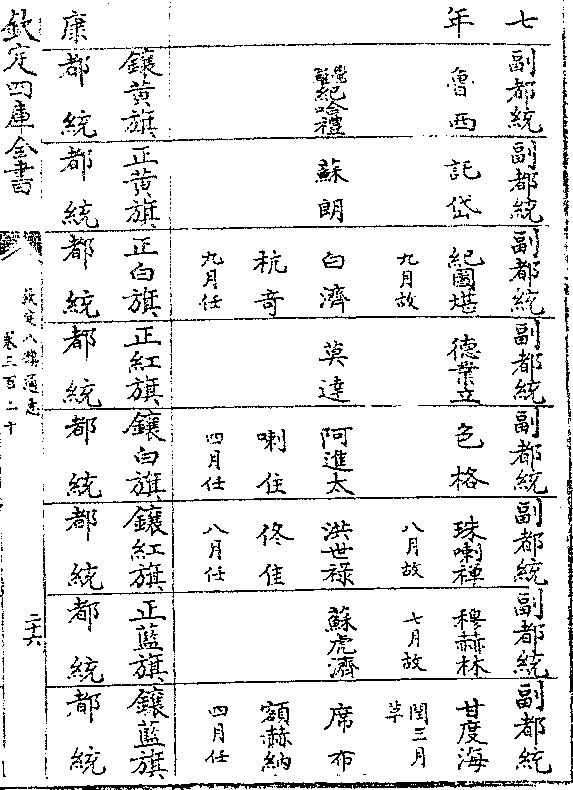 七 副都統 副都統 副都統 副都統 副都統 副都統 副都統 副都統
年 魯西 託岱 紀國堪 德業立 色格 珠喇禪 穆赫林 甘度海
九月故 八月故 七月故 閏三月革
紀哈禮 蘇朗 白濟 莫達 阿進太 洪世祿 蘇虎濟 席布
杭奇 喇住 佟佳 額赫納
九月任 四月任 八月任 四月任
鑲黃旗 正黃旗 正白旗 正紅旗 鑲白旗 鑲紅旗 正藍旗 鑲藍旗
康 都統 都統 都統 都統 都統 都統 都統 都統
欽定四庫全書
欽定八旗通志
卷三百二十
二十六